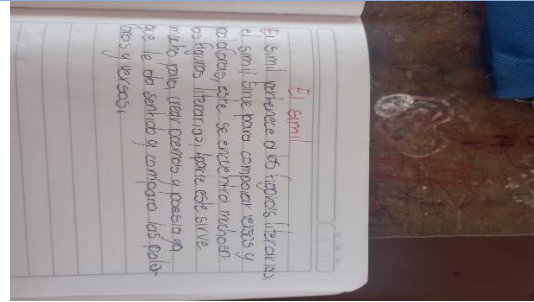 El simil
El simil pertenece a las figuras literarias,
el simil sirve para comparar versos y
palabras, este se encuentra mucho en
as figuras literarias, aparte este sirve
mucho para crear poemas y poesia ya
que le da sentido y compara las pala-
bras y versos,